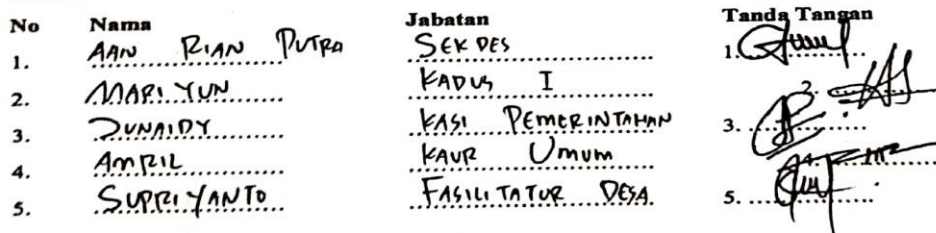 No Nama Jabatan Tanda Tangan
1. AAN RIAN PUTRA SEKDES 1.
2. MARIYUN KADUS I 2.
3. JUNAIDY KASI PEMERINTAHAN 3.
4. AMRIL KAUR UMUM
5. SUPRIYANTO FASILITATUR DESA 5.